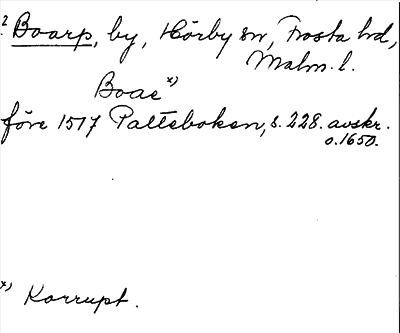 2 Boarp, by, Hörby sn, Frosta hd,
Malm. l.
Boae x)
före 1517 Palteboken, s. 228. avskr.
o. 1650.
x) Korrupt.